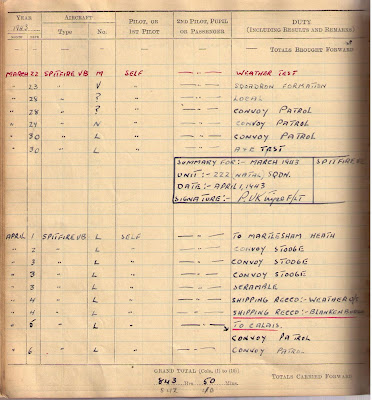 YEAR AIRCRAFT PILOT, OR 1ST PILOT 2ND PILOT, PUPIL OR PASSENGER DUTY (INCLUDING RESULTS AND REMARKS)
1943
MONTH DATE Type No.
— — — — TOTALS BROUGHT FORWARD
MARCH 22 SPITFIRE VB M SELF — " — WEATHER TEST
" 23 " V " — " — SQUADRON FORMATION
" 28 " ? " — " — LOCAL
" 28 " ? " — " — CONVOY PATROL
" 29 " N " — " — CONVOY PATROL
" 30 " L " — " — CONVOY PATROL
" 30 " L " — " — A & E TEST
SUMMARY FOR:- MARCH 1943 SPITFIRE
UNIT:- 222 NATAL SQDN.
DATE:- APRIL 1, 1943
SIGNATURE:- F/LT
APRIL 1 SPITFIRE VB L SELF — " — TO MARTLESHAM HEATH
" 2 " L " — " — CONVOY STODGE
" 3 " L " — " — CONVOY STODGE
" 3 " L " — " — CONVOY STODGE
" 3 " L " — " — SCRAMBLE
" 4 " L " — " — SHIPPING RECCO:- WEATHER
" 4 " L " — " — SHIPPING RECCO:- BLANKENBURG
" 5 " L " — " — TO CALAIS.
CONVOY PATROL
" 6 " L " — " — CONVOY PATROL
GRAND TOTAL [Cols. (1) to (10)].
843 Hrs. 50 Mins. TOTALS CARRIED FORWARD